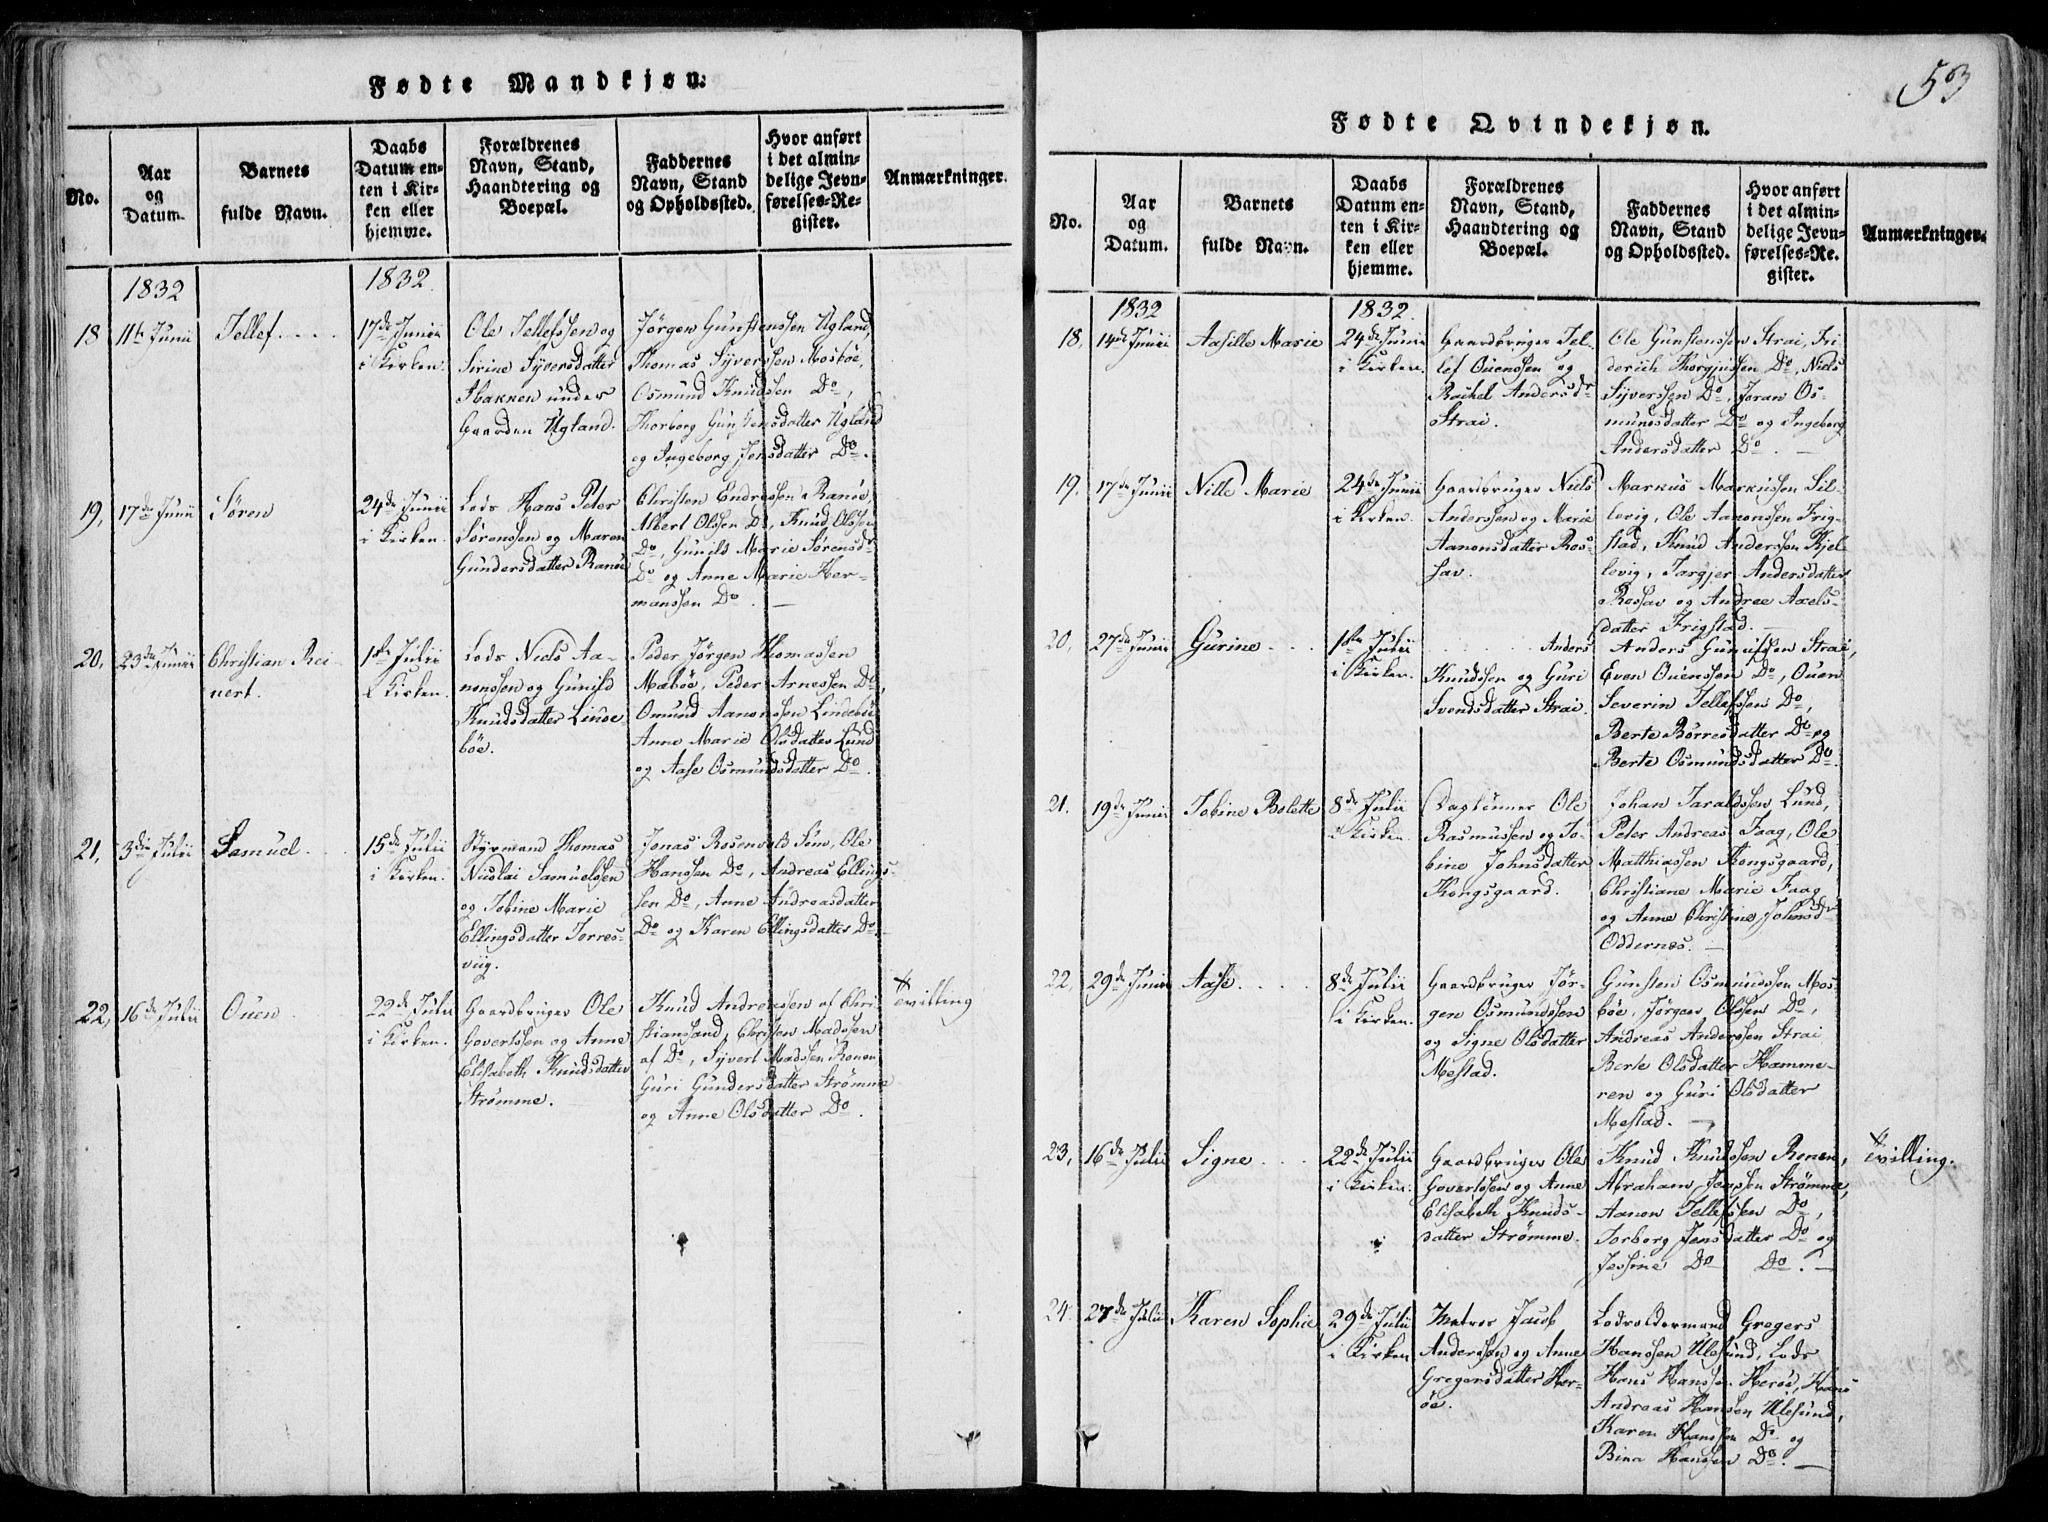 Fødte Mandkjøn.
No.
Aar
og
Datum.
Barnets
fulde Navn.
Daabs
Datum en-
ten i Kir-
ken eller
hjemme.
Forældrenes
Navn, Stand,
Haandtering og
Boepæl.
Faddernes
Navn, Stand
og Opholdssted.
Hvor anført
i det almin-
delige Jevn-
førelses-Re-
gister.
Anmærkninger.
1832
1832.
18
11te Junii
Tellef.
17de Junii
i Kirken.
Ole Tellefssen og
Sirine Syversdatter
Hakken under
Gaarden Ugland.
Jörgen Gunstenssen Ugland,
Thomas Syverssen Mosböe,
Osmund Knudssen Do,
Thorborg Gunstensdatter Ugland
og Ingeborg Jensdatter Do.
19,
17de Junii
Sören
24de Junii
i Kirken.
Lods Hans Peter
Sörenssen og Maren
Gundersdatter Ranöe
Christen Endressen Ranöe,
Albert Olssen Do, Knud Olssen
Do, Gunild Marie Sörensdr
Do og Anne Marie Her-
manssen Do. —
20,
23de Junii
Christian Rei-
nert.
1ste Julii
i Kirken.
Lods Niels Aa-
nonssen og Gunild
Knudsdatter Linde
böe.
Peder Jörgen Thomassen
Mæböe, Peder Arnessen Do,
Omund Aanonssen Lindeböe
Anne Marie Olsdatter Lund
og Aase Osmundsdatter Do.
21,
3die Julii
Samuel.
15de Julii
i Kirken.
Styrmand Thomas
Nicolai Samuelssen
og Tobine Marie
Ellingsdatter Torres-
viig.
Jonas Rosenvold Söm, Ole
Hanssen Do, Andreas Ellings-
sen Do, Anne Andreasdatter
Do og Karen Ellingsdatter Do.
22,
16de Julii
Ouen.
22de Julii
i Kirken.
Gaardbruger Ole
Govertssen og Anne
Elisabeth Knudsdatter
Strömme. —
Knud Andreassen af Chri-
stiansand, Christen Madssen
af Do, Syvert Madssen Ronen
Guri Gundersdatter Strömme
og Anne Olsdatter Do.
Tvilling
53
Fødte Qvindekjøn.
No.
Aar
og
Datum.
Barnets
fulde Navn.
Daabs
Datum en-
ten i Kir-
ken eller
hjemme.
Forældrenes
Navn, Stand,
Haandtering og
Boepæl.
Faddernes
Navn, Stand
og Opholdssted.
Hvor anført
i det almin-
delige Jevn-
førelses-Re-
gister.
Anmærkninger.
1832
1832.
18,
14de Junii
Aasille Marie
24de Junii
i Kirken.
Gaardbruger Tel-
lef Ouenssen og
Rachel Andersdr
Strai.
Ole Gunstenssen Strai, Fri
derich Thorgjussen Do, Niels
Syverssen Do, Joran Os-
mundsdatter Do og Ingeborg
Andersdatter Do. —
19.
17de Junii
Nille Marie
24de Junii
i Kirken.
Gaardbruger Niels
Anderssen og Marie
Aanonsdatter Ros-
sav.
Markus Markussen Sil-
levig, Ole Aanonssen Frig-
stad, Knud Anderssen Kjel-
levig, Targjer Andersdatter
Rossav og Andree Axels-
datter Frigstad. —
20,
27de Junii
Gurine.
1ste Julii
i Kirken.
Anders
Knudssen og Guri
Svendsdatter Strai.
Anders Gunuldsen Strai,
Even Ouenssen Do, Ouen
Severin Tellefssen Do,
Berte Börresdatter Do og
Berte Osmundsdatter Do.
21.
19de Junii
Tobine Bolette
8de Julii
i Kirken.
Daglönner Ole
Rasmussen og To-
bine Johnsdatter
Kongsgaard.
Johan Taraldssen Lund,
Peter Andreas Faag, Ole
Matthiassen Kongsgaard,
Christiane Marie Faag
og Anne Christine Johnsdr
Oddernes. —
22,
29de Junii
Aase.
8de Julii
i Kirken.
Gaardbruger Jör-
gen Osmundssen
og Signe Olsdatter
Mestad.
Gunsten Osmundssen Mos-
böe, Jörgen Olssen Do,
Andreas Anderssen Strai
Berte Olsdatter Hamme-
ren og Guri Olsdatter
Mestad. —
23,
16de Julii
Signe
22de Julii
i Kirken.
Gaardbruger Ole
Govertssen og Anne
Elisabeth Knuds-
datter Strömme.
Knud Knudssen Ronen,
Abraham Jepssen Strömme,
Aanon Tellefssen Do,
Torborg Jensdatter Do og
Jessine Do Do. —
Tvilling.
24.
27de Julii
Karen Sophie
29de Julii
i Kirken
Matros Jacob
Anderssen og Anne
Gregersdatter Her-
öe.
Lodsoldermand Gregers
Hanssen Ulesund, Lods
Hans Hanssen Heröe, Hans
Andreas Hanssen Ulesund,
Karen Hanssen Do og
Bina Hanssen Do. —